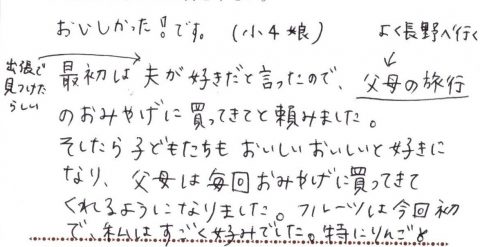 おいしかった!です。(小4娘)
よく長野へ行く
出張で
見つけた
らしい
最初は夫が好きだと言ったので、父母の旅行
のおみやげに買ってきてと頼みました。
そしたら子どもたちもおいしいおいしいと好きに
なり、父母は毎回おみやげに買ってきて
くれるようになりました。フルーツは今回初
で、私はすごく好みでした。特にりんごよ